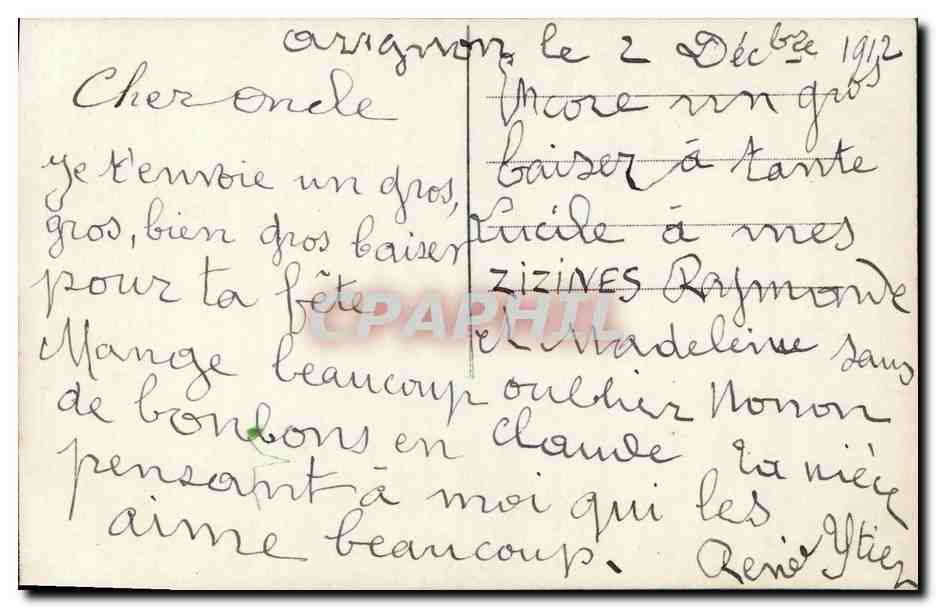 avignon le 2 Déc bre 1912
Cher oncle
Je t'envoie un gros,
gros, bien gros baiser
pour ta fête
Mange beaucoup
de bonbons en
pensant à moi qui les
aime beaucoup.
Encore un gros
baiser à tante
Lucile à mes
ZIZINES Raymonde
et Madeleine sans
oublier Nonon
Claude ta nièce
René
CPAPHIL